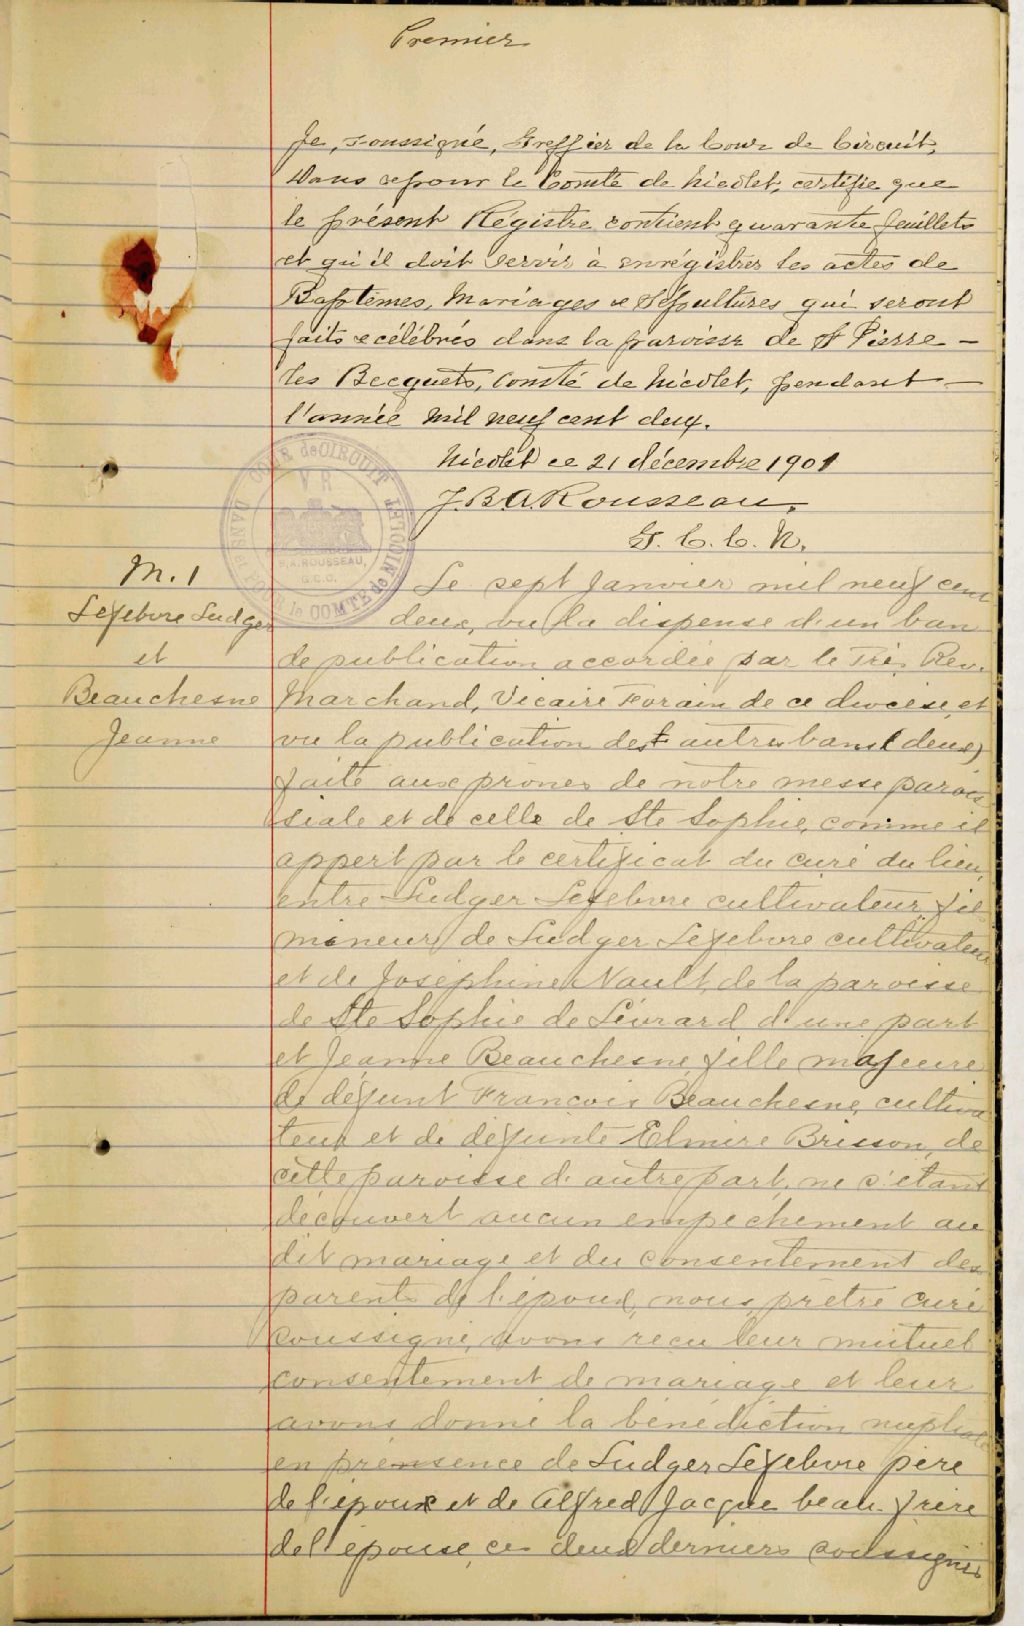 Premier
Je, soussigné, Greffier de la Cour de Circuit,
dans & pour le Comté de Nicolet, certifie que
le présent Régistre contient quarante feuillets
et qu'il doit servir à enrégistrer les actes de
Baptêmes, Mariages & Sépultures qui seront
faits & célébrés dans la paroisse de St Pierre –
les Becquets, Comté de Nicolet, pendant –
l'année mil neuf cent deux.
Nicolet ce 21 décembre 1901
J.B.A. Rousseau,
G. C. C. N.
COUR de CIRCUIT
DANS & POUR le COMTÉ de NICOLET
V R
B.A. ROUSSEAU,
G.C.C.
M. 1
Lefebvre Ludger
et
Beauchesne
Jeanne
Le sept Janvier mil neuf cent
deux, vu la dispense d'un ban
de publication accordée par le Très Rev.
Marchand, Vicaire Forain de ce diocèse, et
vu la publication des autres bans (deux)
faite aux prônes de notre messe parois
siale et de celle de Ste Sophie, comme il
appert par le certificat du curé du lieu,
entre Ludger Lefebvre cultivateur, fils
mineur de Ludger Lefebvre cultivateur
et de Joséphine Nault, de la paroisse
de Ste Sophie de Lévrard d'une part
et Jeanne Beauchesne, fille majeure
de défunt François Beauchesne, cultiva
teur et de défunte Elmire Brisson, de
cette paroisse d'autre part, ne s'étant
découvert aucun empêchement au
dit mariage et du consentement des
parents de l'époux, nous, prêtre curé
soussigné, avons reçu leur mutuel
consentement de mariage et leur
avons donné la bénédiction nuptiale
en présence de Ludger Lefebvre père
de l'époux et de Alfred Jacque beau-frère
de l'épouse, ces deux derniers soussignés